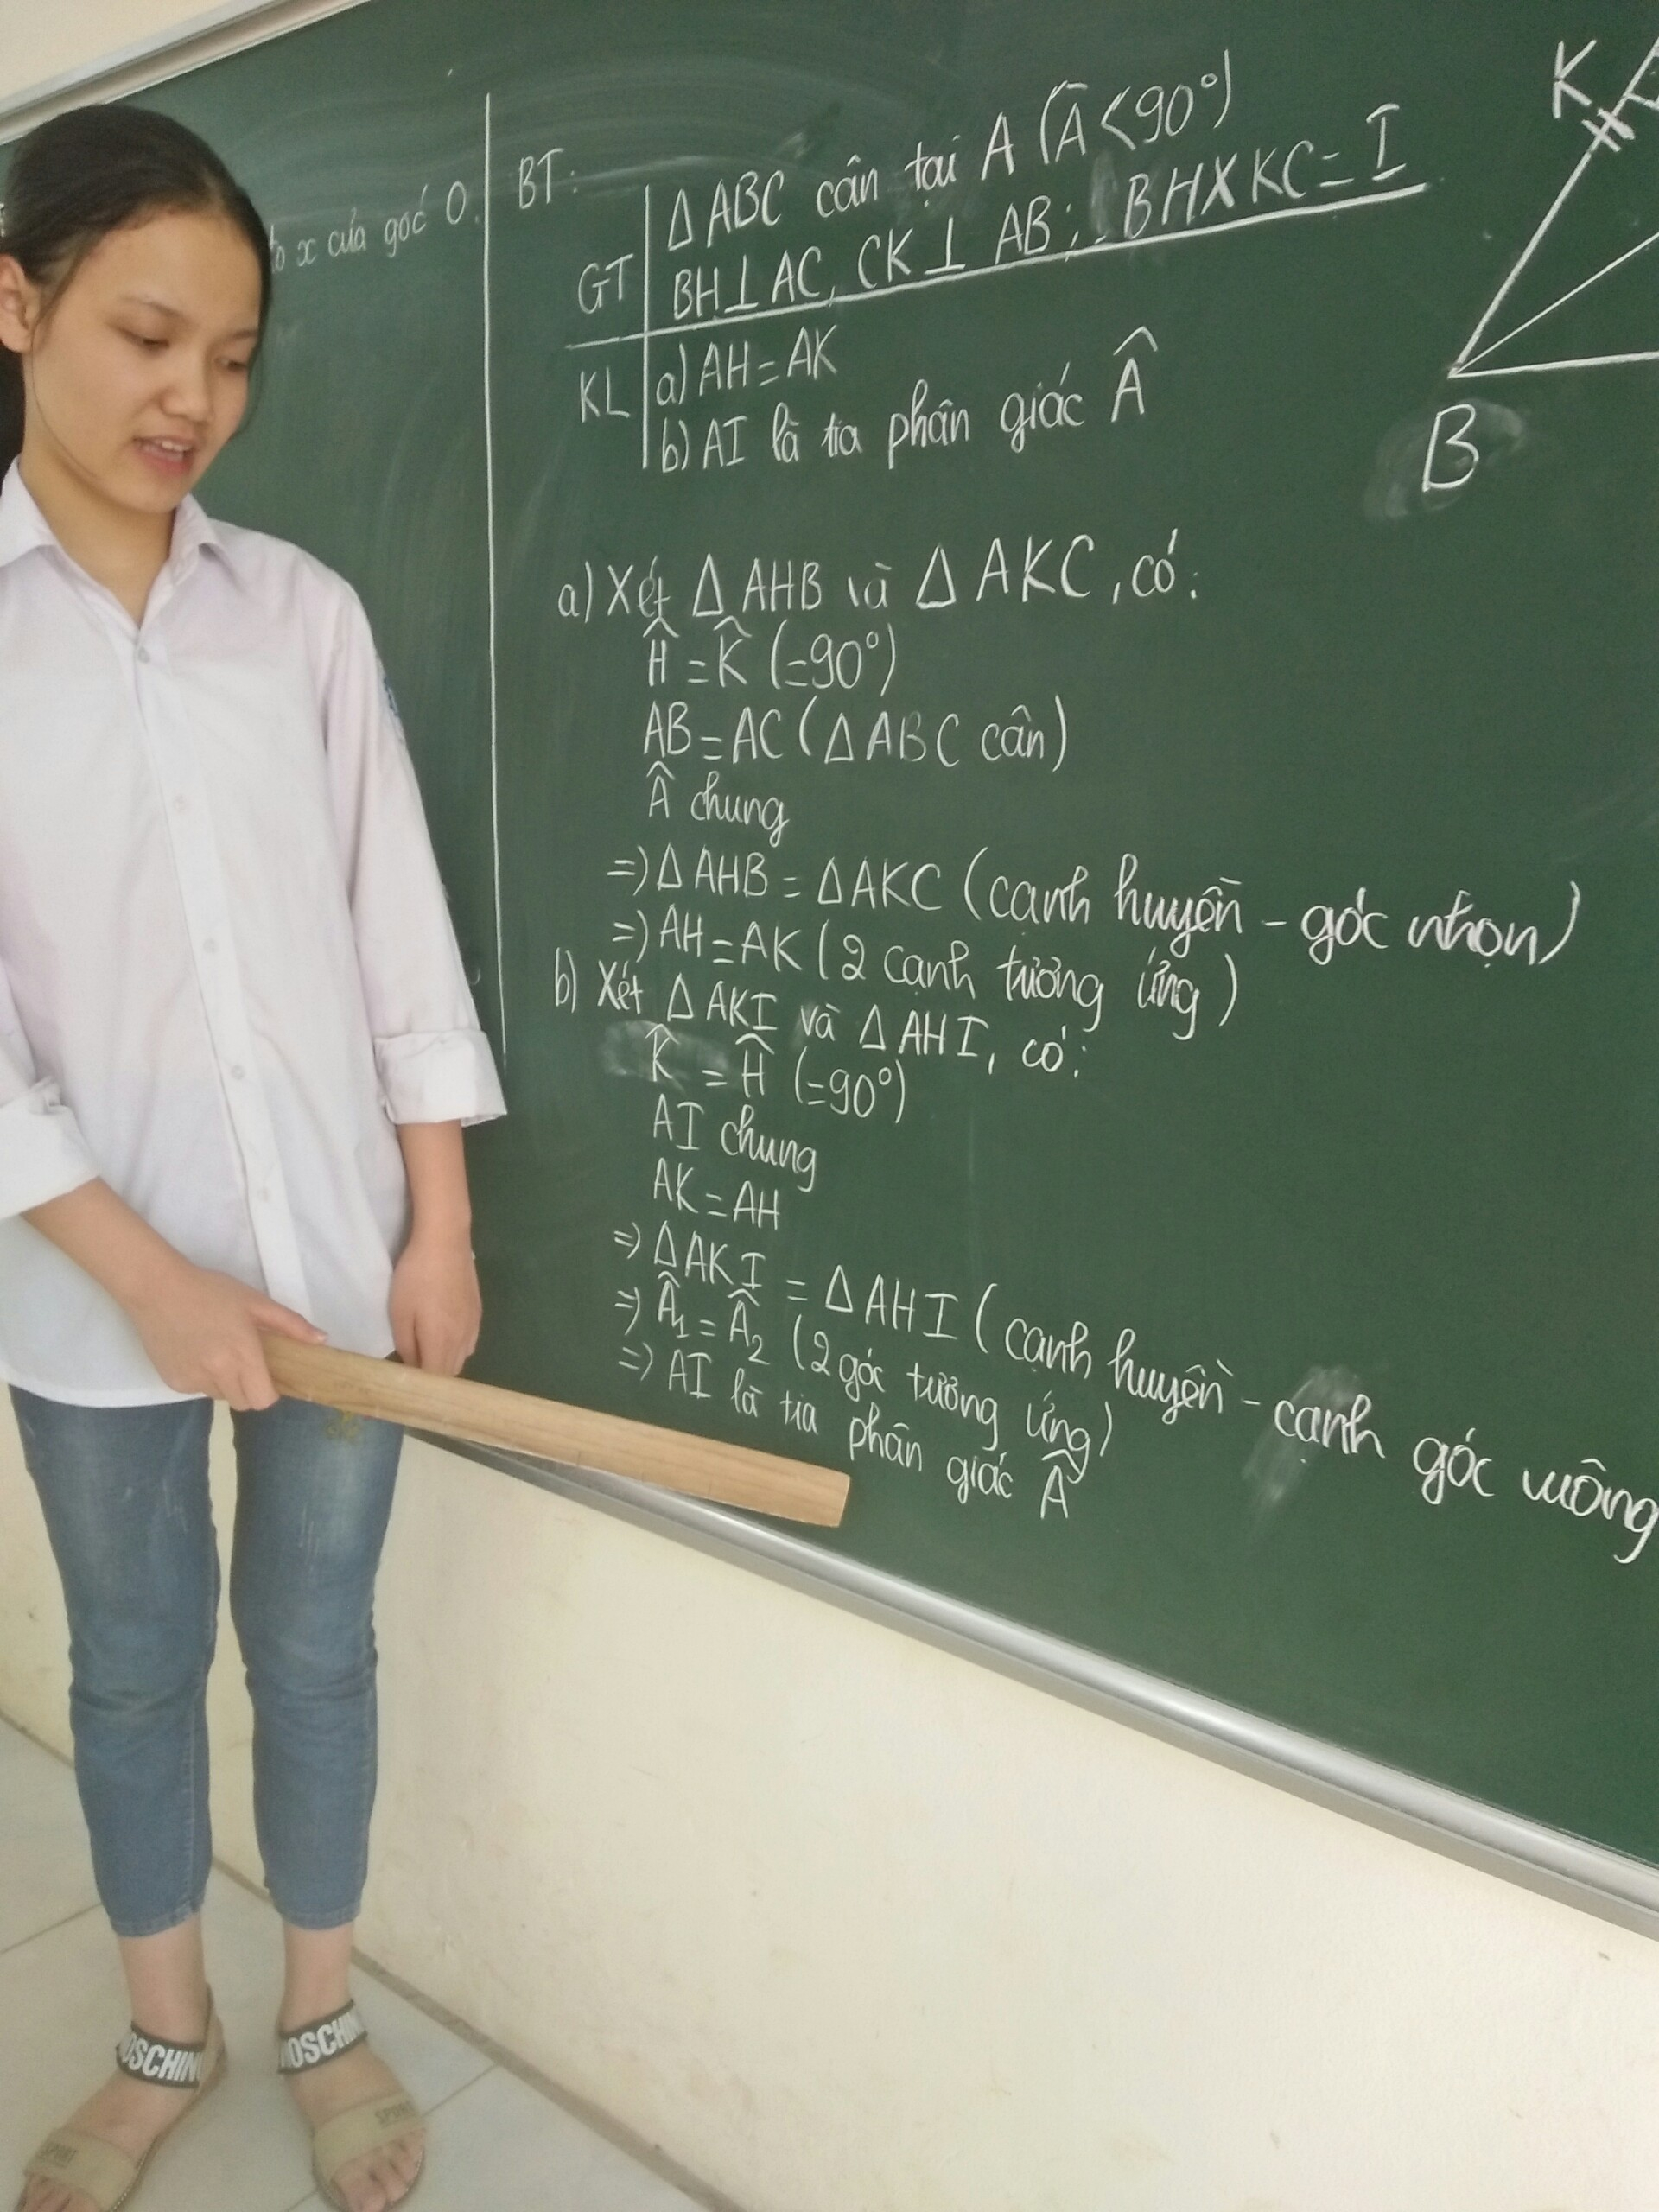 x của góc O.
BT:
GT
ΔABC cân tại A (Â<90°)
BH⊥AC, CK⊥AB; BHXKC=I
KL
a) AH=AK
b) AI là tia phân giác Â
K
B
a) Xét ΔAHB và ΔAKC, có:
Ĥ=K̂ (=90°)
AB=AC (ΔABC cân)
Â chung
=> ΔAHB = ΔAKC (cạnh huyền - góc nhọn)
=> AH=AK (2 cạnh tương ứng)
b) Xét ΔAKI và ΔAHI, có:
K̂ = Ĥ (=90°)
AI chung
AK=AH
=> ΔAKI = ΔAHI (cạnh huyền - cạnh góc vuông
=> Â₁ = Â₂ (2 góc tương ứng)
=> AI là tia phân giác Â
OSCHIN
MOSCHIN
SPORT
SPORT